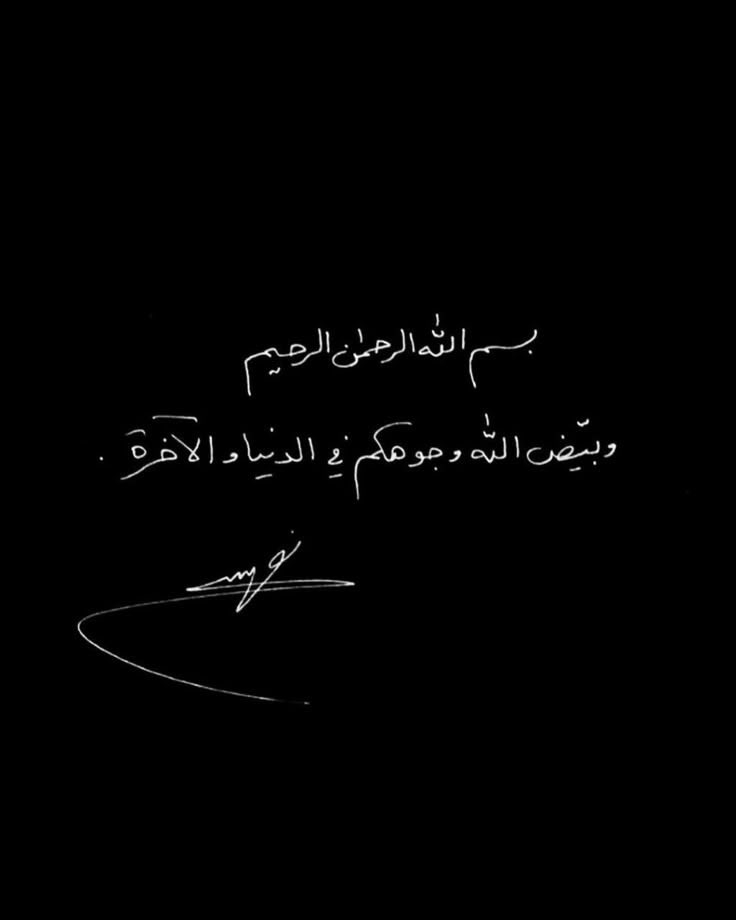 بسم الله الرحمٰن الرحيم
وبيّض الله وجوهكم في الدنيا والآخرة .